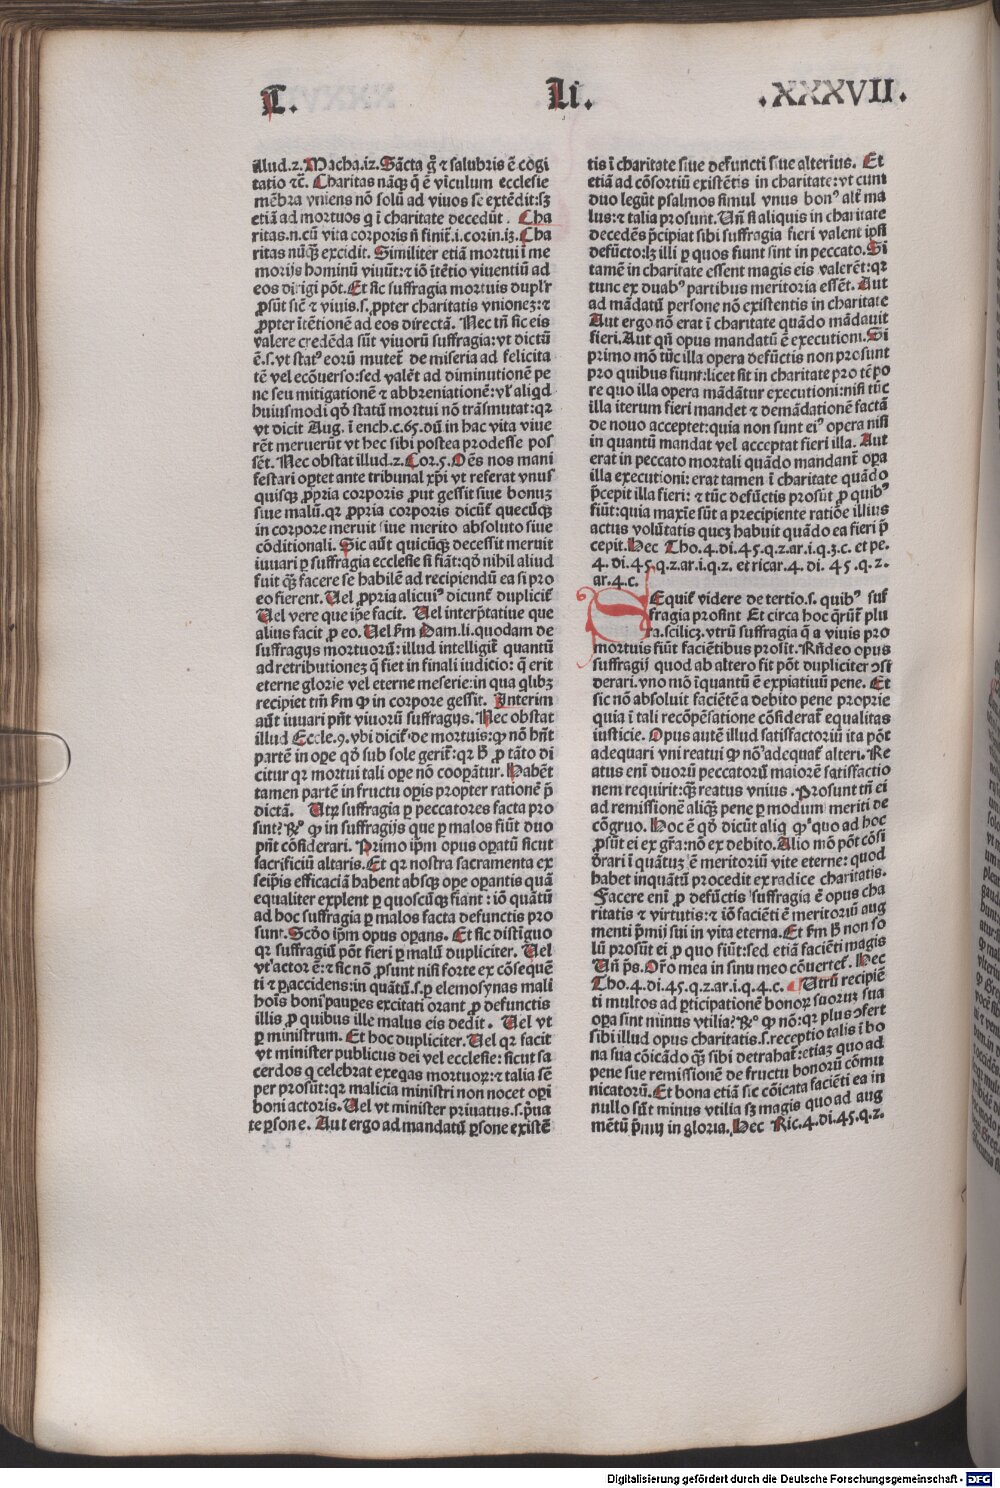 T.
Li.
.XXXVII.
illud.2.Macha.i2.Sācta g̃ ⁊ salubris ē cogi
tatio ⁊c̃. Charitas nāqꝫ q̃ ē vīculum ecclesie
mēbra vniens nō solū ad viuos se extēdit:sꝫ
etiā ad mortuos q i charitate decedūt. Cha
ritas.n.cū vita corporis ñ finit̃.i.corin.i3.Cha
ritas nūqꝫ excidit. Similiter etiā mortui ī me
morijs hominū viuūt:⁊ iō ītētio viuentiū ad
eos dirigi pōt.Et sic suffragia mortuis duplr̃
ꝓsūt sic̃ ⁊ viuis.s.ꝓpter charitatis vnionez:⁊
ꝓpter ītētionē ad eos directā. Nec tñ sic eis
valere credēda sūt viuorū suffragia:vt dictū
ē.s.vt statꝰ eorū mutet̃ de miseria ad felicita
tē vel ecōuerso:sed valēt ad diminutionē pe
ne seu mitigationē ⁊ abbreniationē:vl̃ aliqd
huiusmodi qđ statū mortui nō trāsmutat:qꝛ
vt dicit Aug. ī ench.c.65.dū in hac vita viue
rēt meruerūt vt hec sibi postea prodesse pos
sēt. Nec obstat illud.2.Cor.5.Oēs nos mani
festari oꝑtet ante tribunal xp̃i vt referat vnus
quisqꝫ ꝓpria corporis ꝓut gessit siue bonuz
siue malū.qꝛ ꝓpria corporis dicūt̃ quecūqꝫ
in corpore meruit siue merito absoluto siue
cōditionali. Sic aūt quicūqꝫ decessit meruit
iuuari ꝑ suffragia ecclesie si fiāt:qđ nihil aliud
fuit qꝫ facere se habilē ad recipiendū ea si pro
eo fierent. Uel ꝓpria alicuiꝰ dicunt̃ duplicit̃
Uel vere que ip̃e facit. Uel interp̃tatiue que
alius facit ꝓ eo. Uel ẞm Dam.li.quodam de
suffragijs mortuorū: illud intelligit̃ quantū
ad retributionez q̃ fiet in finali iudicio: q̃ erit
eterne glorie vel eterne meserie:in qua qlibꝫ
recipiet tm̃ ẞm ꝙ in corpore gessit. Interim
aūt iuuari pñt viuorū suffragijs. Nec obstat
illud Eccle.9.vbi dicit̃ de mortuis:ꝙ nō hñt
partē in oꝑe qđ sub sole gerit̃:qꝛ ẞ ꝓ tāto di
citur qꝛ mortui tali oꝑe nō cooꝑātur. Habēt
tamen partē in fructu oꝑis propter rationē p̃
dictā. Utꝝ suffragia ꝑ peccatores facta pro
sunt? ℞ꝰ ꝙ in suffragijs que ꝑ malos fiūt duo
pñt cōsiderari. Primo ip̃m opus oꝑatū sicut
sacrificiū altaris.Et qꝛ nostra sacramenta ex
seip̃is efficaciā habent absqꝫ oꝑe oꝑantis quā
equaliter explent ꝑ quoscūqꝫ fiant : iō quātū
ad hoc suffragia ꝑ malos facta defunctis pro
sunt. Scđo ip̃m opus oꝑans. Et sic distiguo
qꝛ suffragiū pōt fieri ꝑ malū dupliciter. Uel
vt actor ē:⁊ sic nō ꝓsunt nisi forte ex cōsequē
ti ⁊ ꝑ accidens:in quātū.s.ꝑ elemosynas mali
hoīs boni pauꝑes excitati orant ꝓ defunctis
illis ꝓ quibus ille malus eis dedit. Uel vt
ꝑ ministrum. Et hoc dupliciter.Uel qꝛ facit
vt minister publicus dei vel ecclesie: sicut sa
cerdos q celebrat exeqas mortuoꝝ:⁊ talia sē
per prosūt:qꝛ malicia ministri non nocet oꝑi
boni actoris. Uel vt minister priuatus.s.p̃ua
te ꝑsone. Aut ergo ad mandatū ꝑsone existē
tis ī charitate siue defuncti siue alterius. Et
etiā ad cōsortiū existētis in charitate:vt cum
duo legūt psalmos simul vnus bonꝰ alt̃ ma
lus:⁊ talia prosunt.Uñ si aliquis in charitate
decedēs p̃cipiat sibi suffragia fieri valent ipsi
defūcto:lꝫ illi ꝑ quos fiunt sint in peccato.Si
tamē in charitate essent magis eis valerēt:qꝛ
tunc ex duabꝰ partibus meritoria essēt. Aut
ad mādatū persone nō existentis in charitate
Aut ergo nō erat ī charitate quādo mādauit
fieri.Aut qñ opus mandatū ē executioni.Si
primo mō tūc illa opera defūctis non prosunt
pro quibus fiunt:licet sit in charitate pro tēpo
re quo illa opera mādātur executioni:nisi tūc
illa iterum fieri mandet ⁊ demādationē factā
de nouo acceptet:quia non sunt eiꝰ opera nisi
in quantū mandat vel acceptat fieri illa. Aut
erat in peccato mortali quādo mandant̃ oꝑa
illa executioni: erat tamen ī charitate quādo
p̃cepit illa fieri: ⁊ tūc defūctis prosūt ꝓ quibꝰ
fiūt:quia maxīe sūt a precipiente ratiōe illius
actus volūtatis quez habuit quādo ea fieri p̃
cepit.Hec Tho.4.di.45.q.2.ar.i.q.3.c. et pe.
4. di.45.q.2.ar.i.q.2. et ricar.4. di. 45.q.2.
ar.4.c.
SEquit̃ videre de tertio.s. quibꝰ suf
fragia prosint Et circa hoc q̃rūt̃ plu
ra.scilicꝫ.vtrū suffragia q̃ a viuis pro
mortuis fiūt faciētibus prosit. Rñdeo opus
suffragij quod ab altero fit pōt dupliciter ↄsi
derari.vno mō īquātū ē expiatiuū pene. Et
sic nō absoluit faciētē a debito pene proprie
quia ī tali recōpēsatione cōsiderat̃ equalitas
iusticie. Opus autē illud satisfactoriū ita pōt
adequari vni reatui ꝙ nō adequat̃ alteri. Re
atus enī duorū peccatorū maiorē satisfactio
nem requirit:qꝫ reatus vnius. Prosunt tñ ei
ad remissionē aliqꝫ pene ꝑ modum meriti de
cōgruo. Hoc ē qđ dicūt aliq ꝙ quo ad hoc
ꝓsūt ei ex gr̃a:nō ex debito. Alio mō pōt cōsi
đrari ī quātuz ē meritoriū vite eterne: quod
habet inquātū procedit ex radice charitatis.
Facere enī ꝓ defūctis suffragia ē opus cha
ritatis ⁊ virtutis:⁊ iō faciēti ē meritoriū aug
menti p̃mij sui in vita eterna. Et ẞm ẞ non so
lū prosūt ei ꝓ quo fiūt:sed etiā faciēti magis
Uñ p̄s.Or̃o mea in sinu meo cōuertet̃. Hec
Tho.4.di.45.q.2.ar.i.q.4.c. Utrū recipiē
ti multos ad ꝑticipationē bonoꝝ suoruꝫ sua
oꝑa sint minus vtilia? ℞ꝰ ꝙ nō:qꝛ plus ↄfert
sibi illud opus charitatis.s.receptio talis ī bo
na sua cōicādo qꝫ sibi detrahat̃:etiaꝫ quo ad
pene sue remissionē de fructu bonorū cōmu
nicatorū.Et bona etiā sic cōicata faciēti ea in
nullo sūt minus vtilia sꝫ magis quo ad aug
mētū p̃mij in gloria. Hec Ric.4.di.45.q.2.
Digitalisierung gefördert durch die Deutsche Forschungsgemeinschaft - DFG